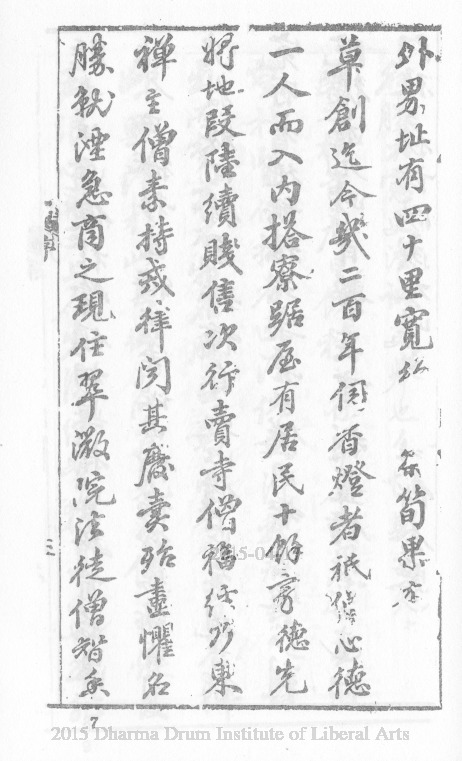 外界址有四十里寬 筍果
草創迄今幾二百年伺香燈者祇僧心德
一人而入內搭寮踞屋有居民十餘家德先
將地段陸續賤售次行賣寺僧福
禪主僧秉持戒律聞其廢賣殆盡懼名
勝就湮急商之現住翠微院法徒僧智
7
2015 Dharma Drum Institute of Liberal Arts